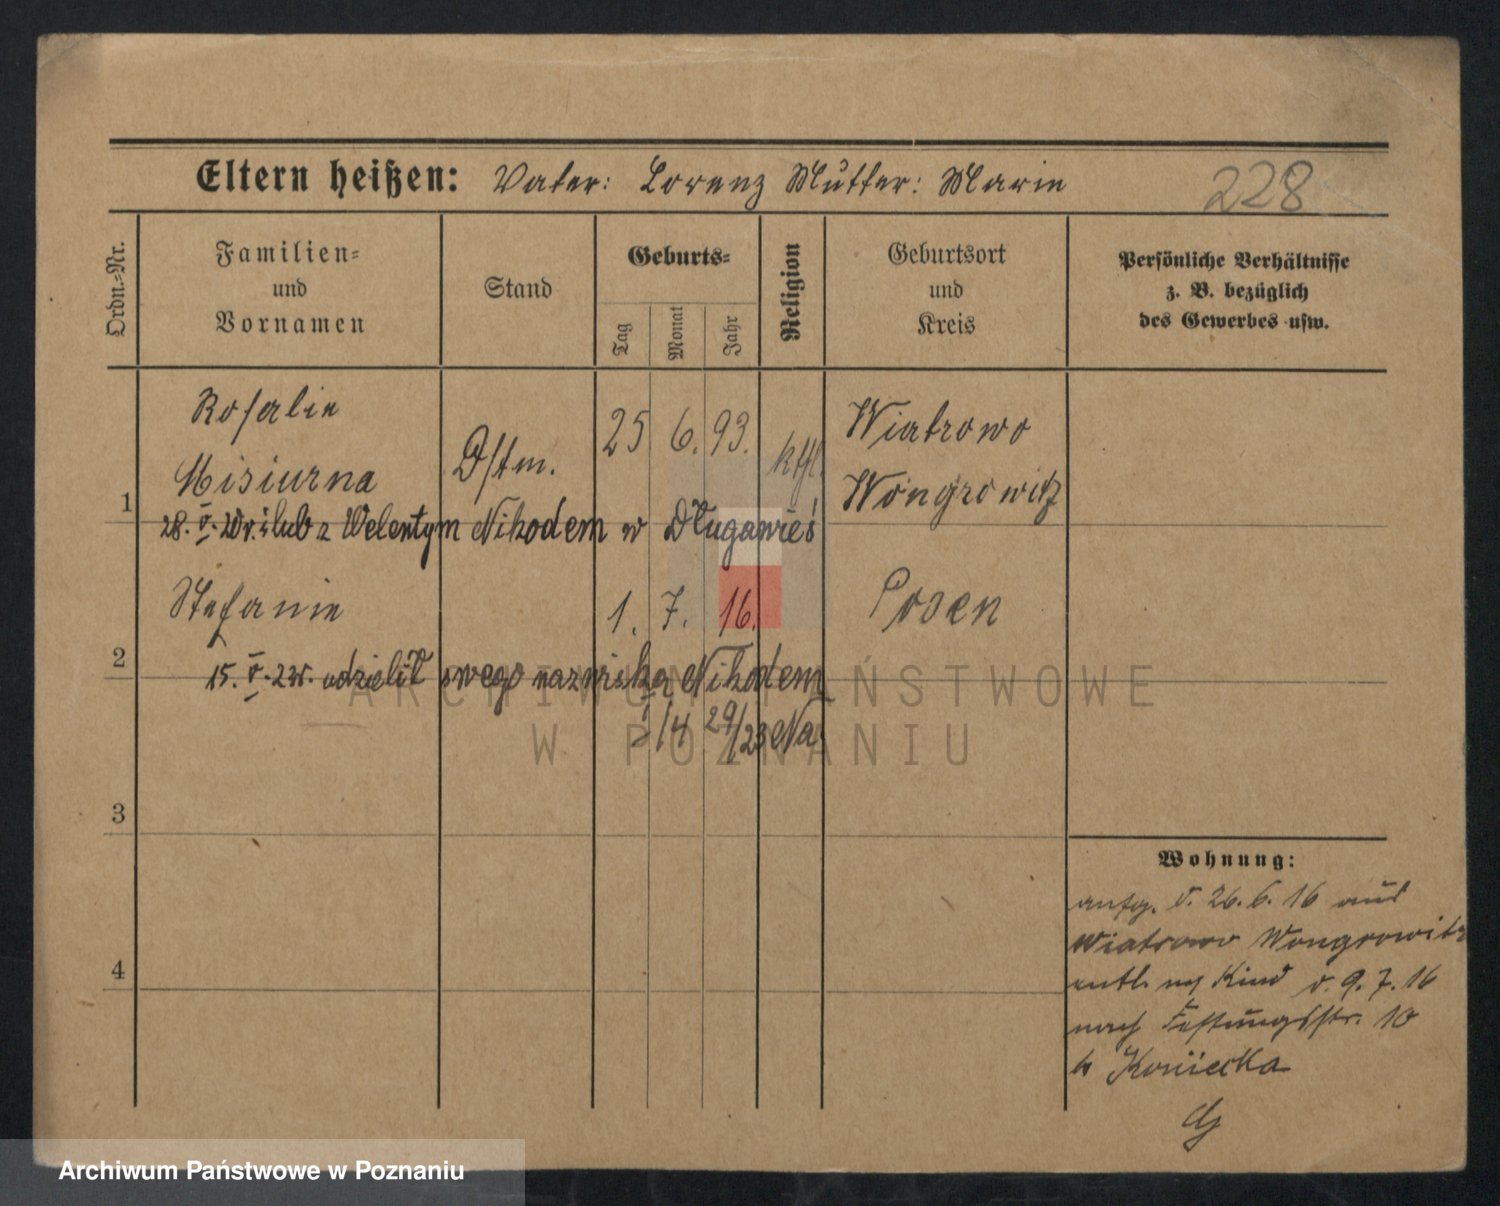 Eltern heißen: Vater: Lorenz Mutter: Marie
228
Ordn.-Nr.
Familien-
und
Vornamen
Stand
Geburts-
Tag
Monat
Jahr
Religion
Geburtsort
und
Kreis
Persönliche Verhältnisse
z. B. bezüglich
des Gewerbes usw.
1
Rosalie
Misiurna
Dstm.
25 6. 93.
kthl.
Wiatrowo
Wongrowitz
28. V. ślub z Walentym Nikodem w
2
Stefanie
1. 7. 16.
Posen
15. V. udzielił swego nazwiska Nikodem
/4 29/23 Na
3
4
Wohnung:
v. 26. 6. 16 aus
Wiatrowo Wongrowitz
entl. Kind v. 9. 7. 16
nach Festungsstr. 10
b
ARCHIWUM PAŃSTWOWE
W POZNANIU
Archiwum Państwowe w Poznaniu